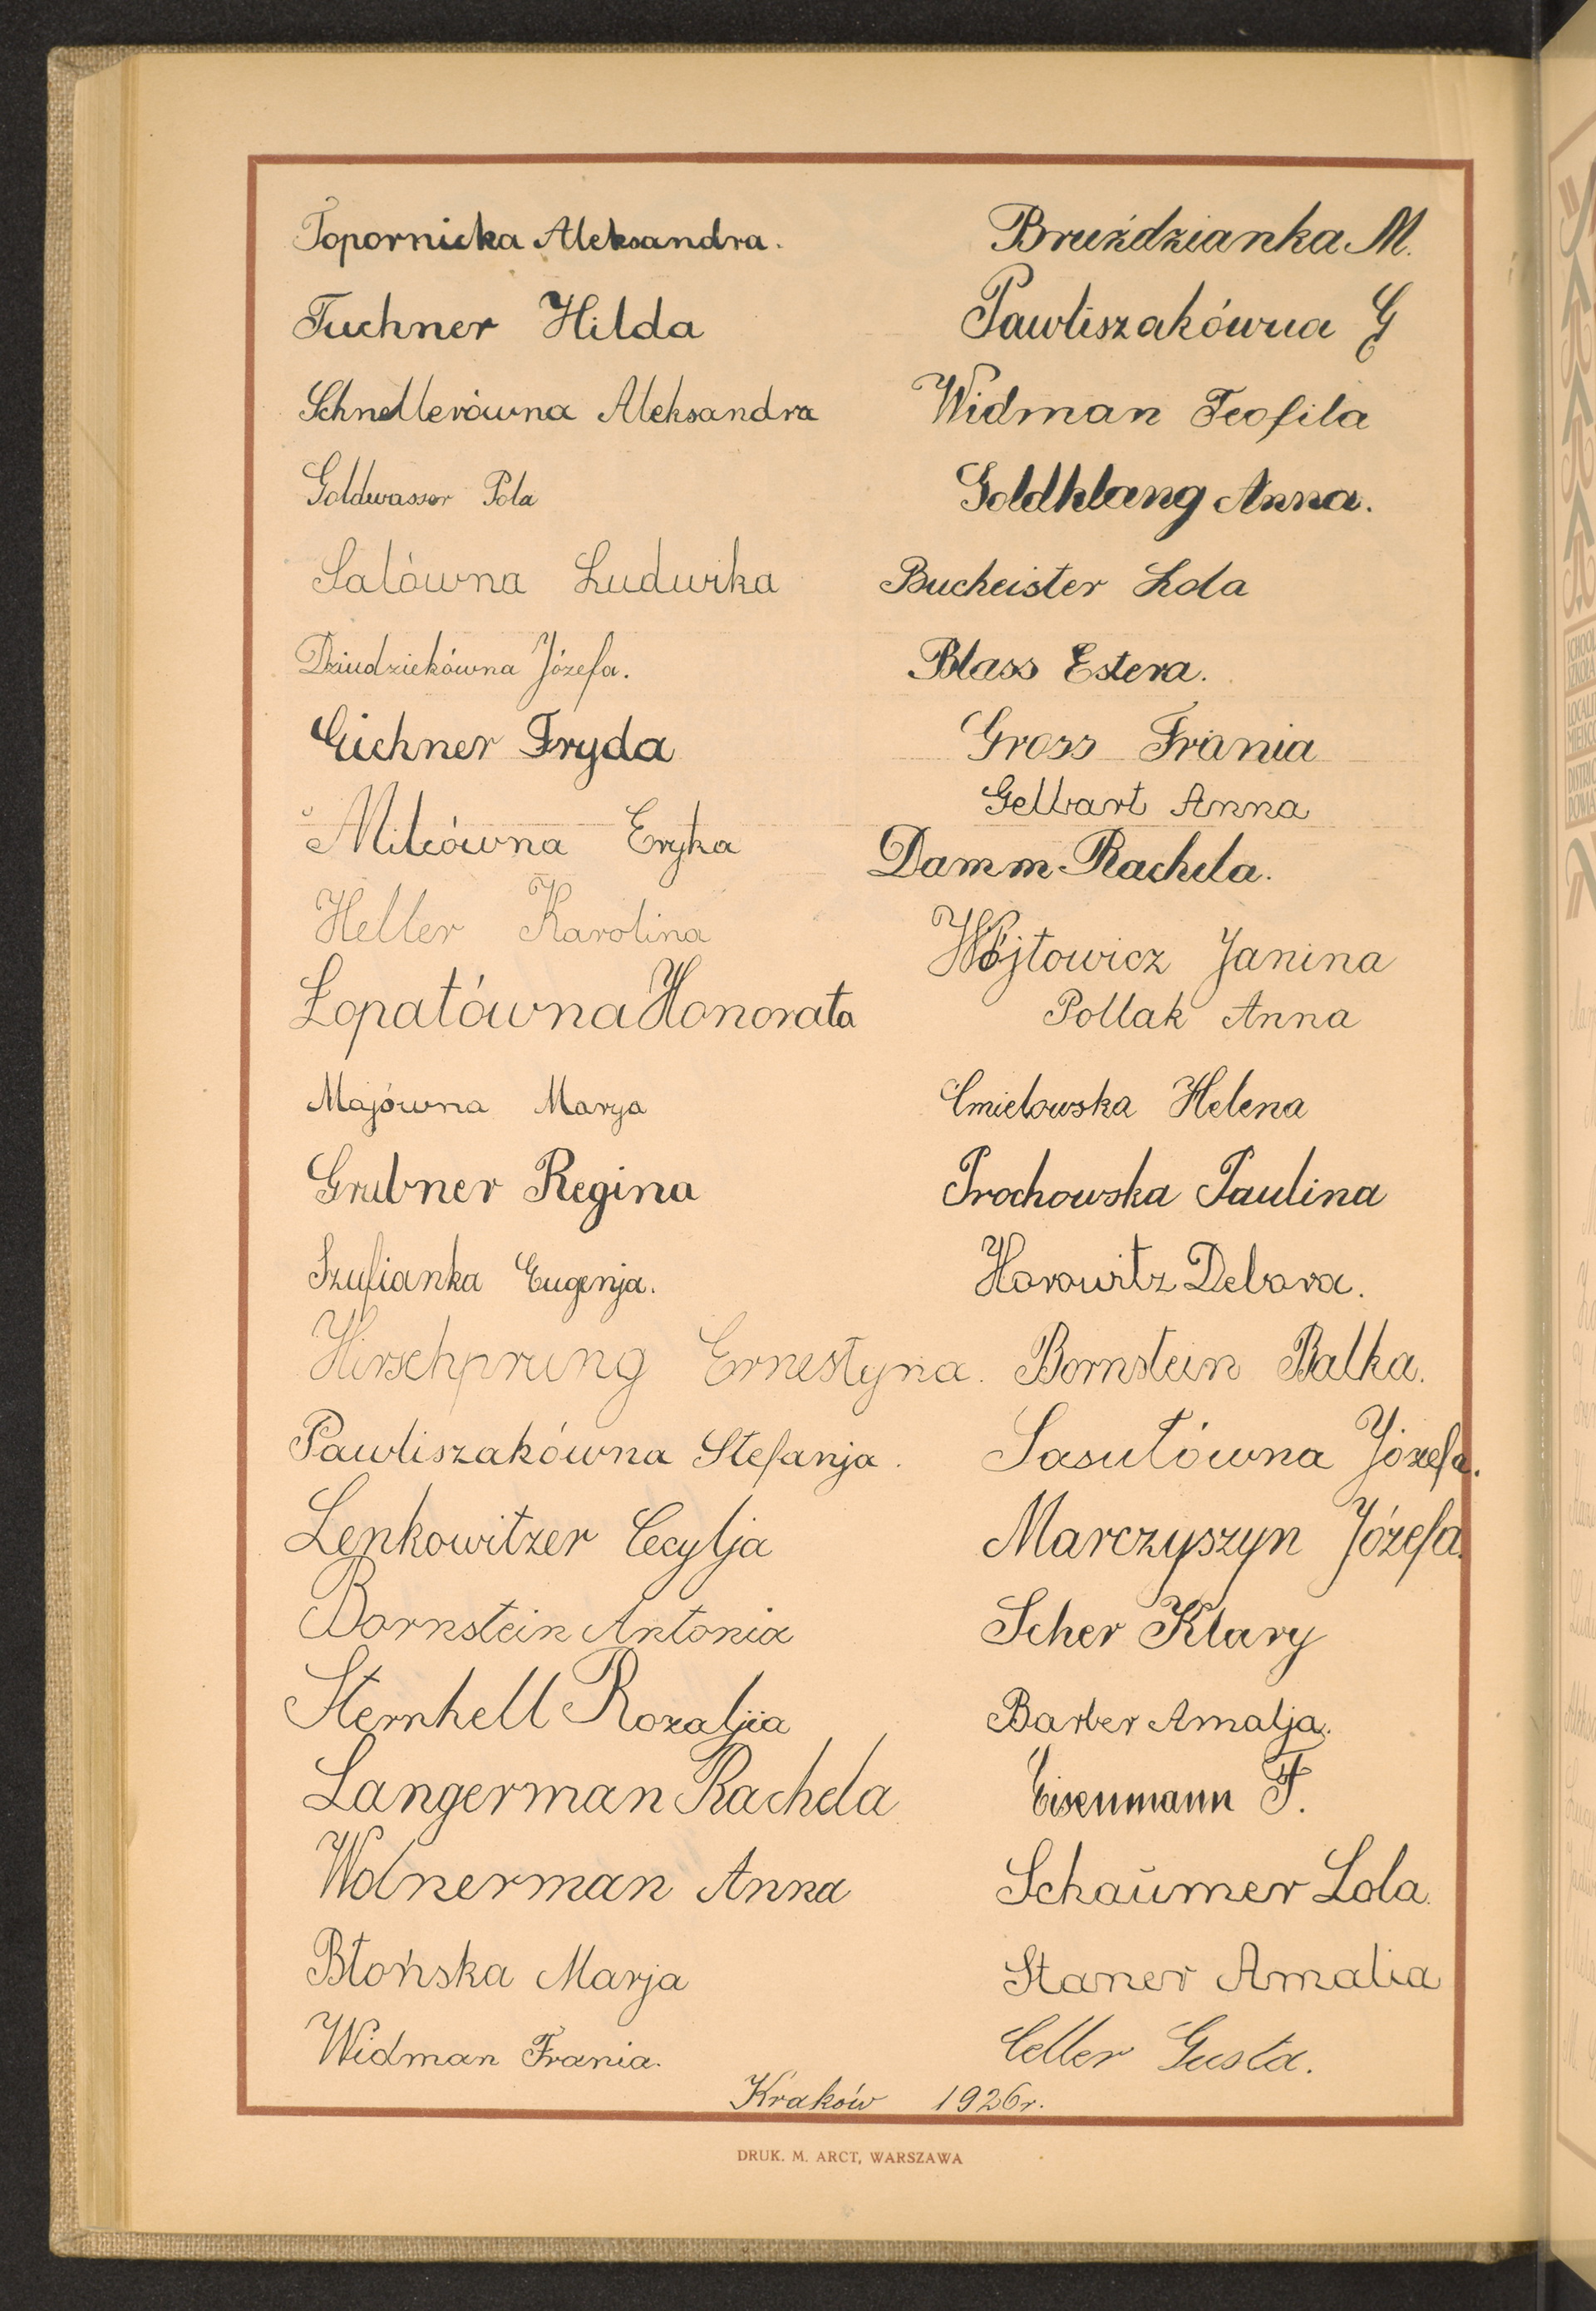 Topornicka Aleksandra.
Tuchner Hilda
Schnellerówna Aleksandra
Goldwasser Pola
Salówna Ludwika
Dziudziekówna Józefa.
Eichner Fryda
Milcówna Eryka
Heller Karolina
Łopatówna Honorata
Majówna Marya
Grubner Regina
Szufianka Eugenja.
Hirschprung Ernestyna.
Pawliszakówna Stefanja.
Lenkowitzer Cecylja
Bornstein Antonia
Sternhell Rozalja
Langerman Rachela
Wolnerman Anna
Błońska Marja
Widman Frania.
Bruździanka M.
Pawliszakówna G
Widman Teofila
Goldklang Anna.
Bucheister Lola
Blass Estera.
Gross Frania
Gelbart Anna
Damm Rachela.
Wójtowicz Janina
Pollak Anna
Ćmielowska Helena
Prochowska Paulina
Horowitz Debora.
Bornstein Balka.
Sasułówna Józefa.
Marczyszyn Józefa.
Scher Klary
Barber Amalja.
Eisenmann F.
Schaumer Lola.
Staner Amalia
Celler Gusta.
Kraków 1926r.
DRUK. M. ARCT, WARSZAWA